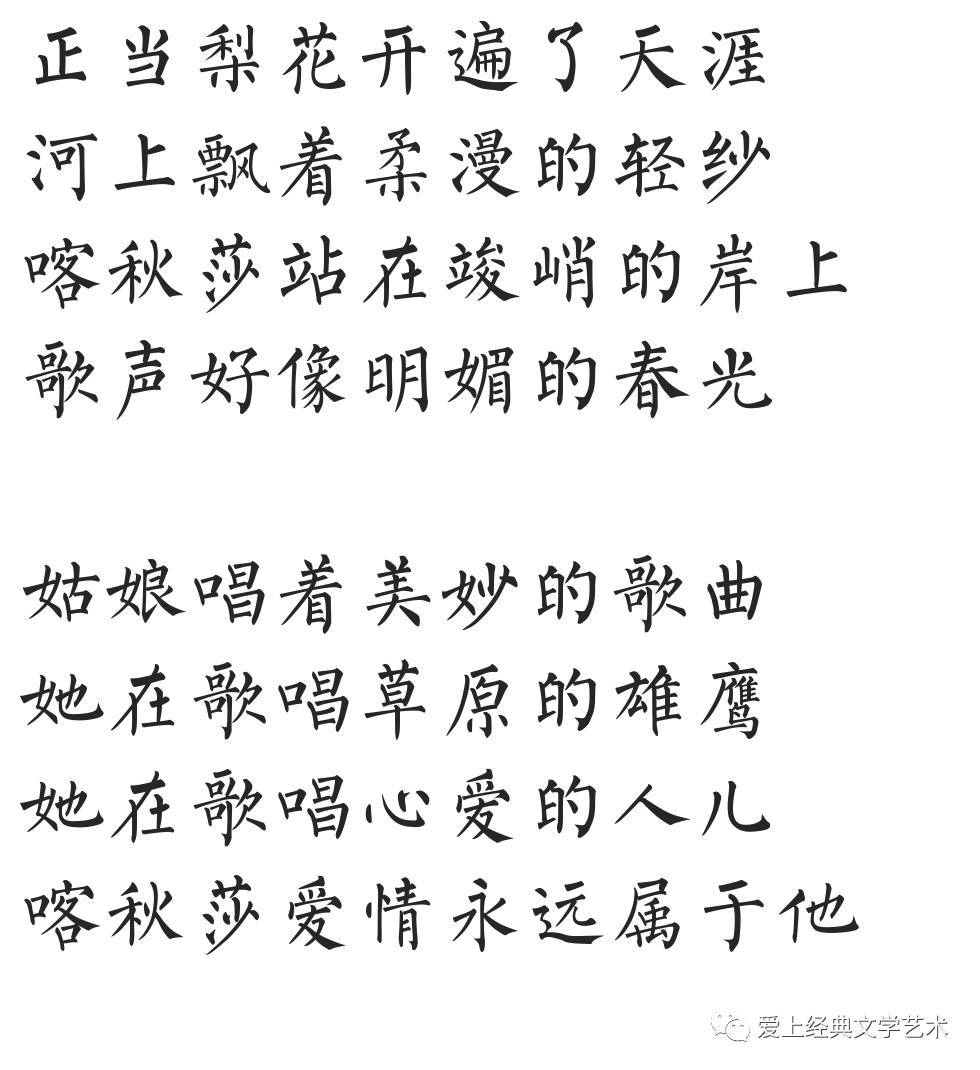 正当梨花开遍了天涯
河上飘着柔漫的轻纱
喀秋莎站在竣峭的岸上
歌声好像明媚的春光
姑娘唱着美妙的歌曲
她在歌唱草原的雄鹰
她在歌唱心爱的人儿
喀秋莎爱情永远属于他
爱上经典文学艺术